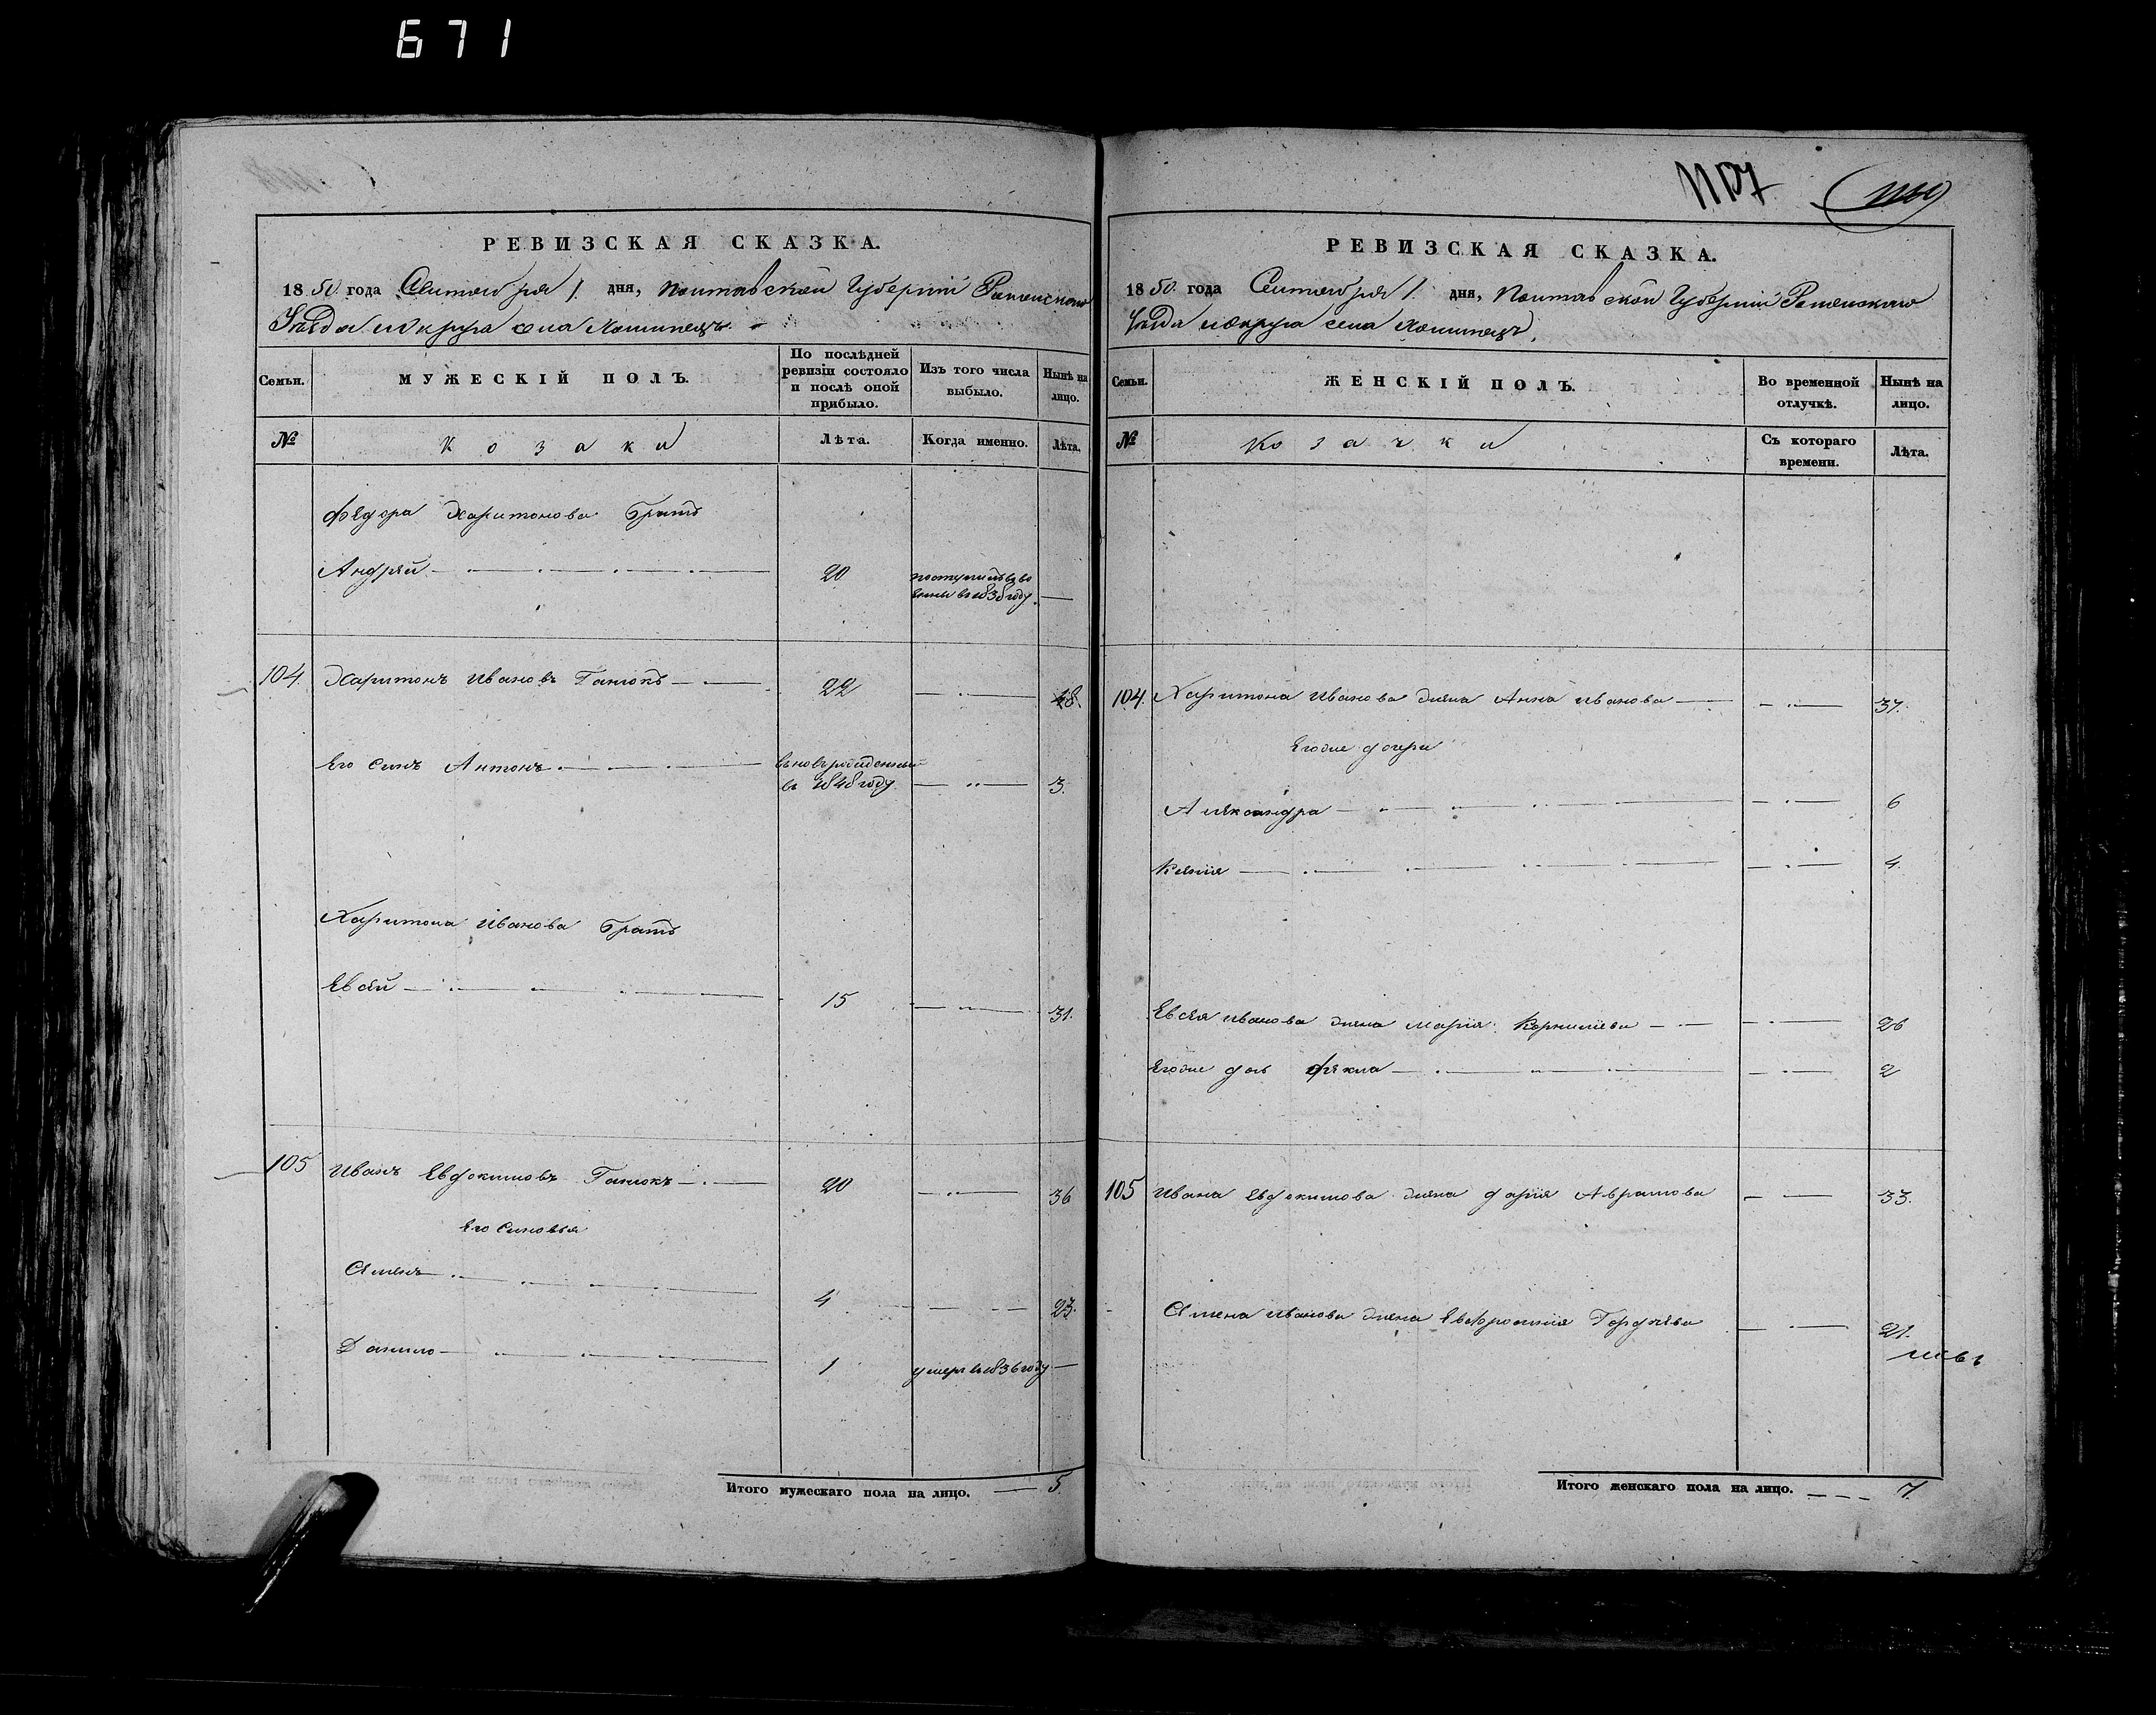 671
1107
РЕВИЗСКАЯ СКАЗКА.
1850 года Сентября 1. дня, Полтавской Губерніи Роменскаго
Уезда и округа села Хоминецъ.
Семьи. МУЖЕСКІЙ ПОЛЪ. По послѣдней ревизіи состояло и послѣ оной прибыло. Изъ того числа выбыло. Нынѣ на лицо.
№ Козаки Лѣта. Когда именно. Лѣта.
Федора Харитонова братъ
Андрей 20 поступилъ въ во
ены въ 1838 году. —
104 Харитонъ Ивановъ Ганюкъ 22 — 38.
Его сынъ Антонъ вновьрожденный
въ 1848 году — 3.
Харитона Иванова братъ
Евсей 15 — 31.
105 Иванъ Евдокимовъ Ганюкъ 20 — 36
Его сыновья
Семенъ 4 — 23.
Данило 1 умеръ въ 1836 году —
Итого мужескаго пола на лицо. — 5.
РЕВИЗСКАЯ СКАЗКА.
1850 года Сентября 1. дня, Полтавской Губерніи Роменскаго
Уезда и округа села Хоминецъ.
Семьи. ЖЕНСКІЙ ПОЛЪ. Во временной отлучкѣ. Нынѣ на лицо.
№ Козачки Съ котораго времени. Лѣта.
104. Харитона Иванова жена Анна Иванова — 37.
Егоже дочери
Александра — 6
Ксенія — 4.
Евсея Иванова жена Марія Корниліева — 26
Егоже дочь Фекла — 2
105 Ивана Евдокимова жена Дарія Аврамова — 33.
Семена Иванова жена Евфросинія Гордѣева — 21.
Итого женскаго пола на лицо. — 7.